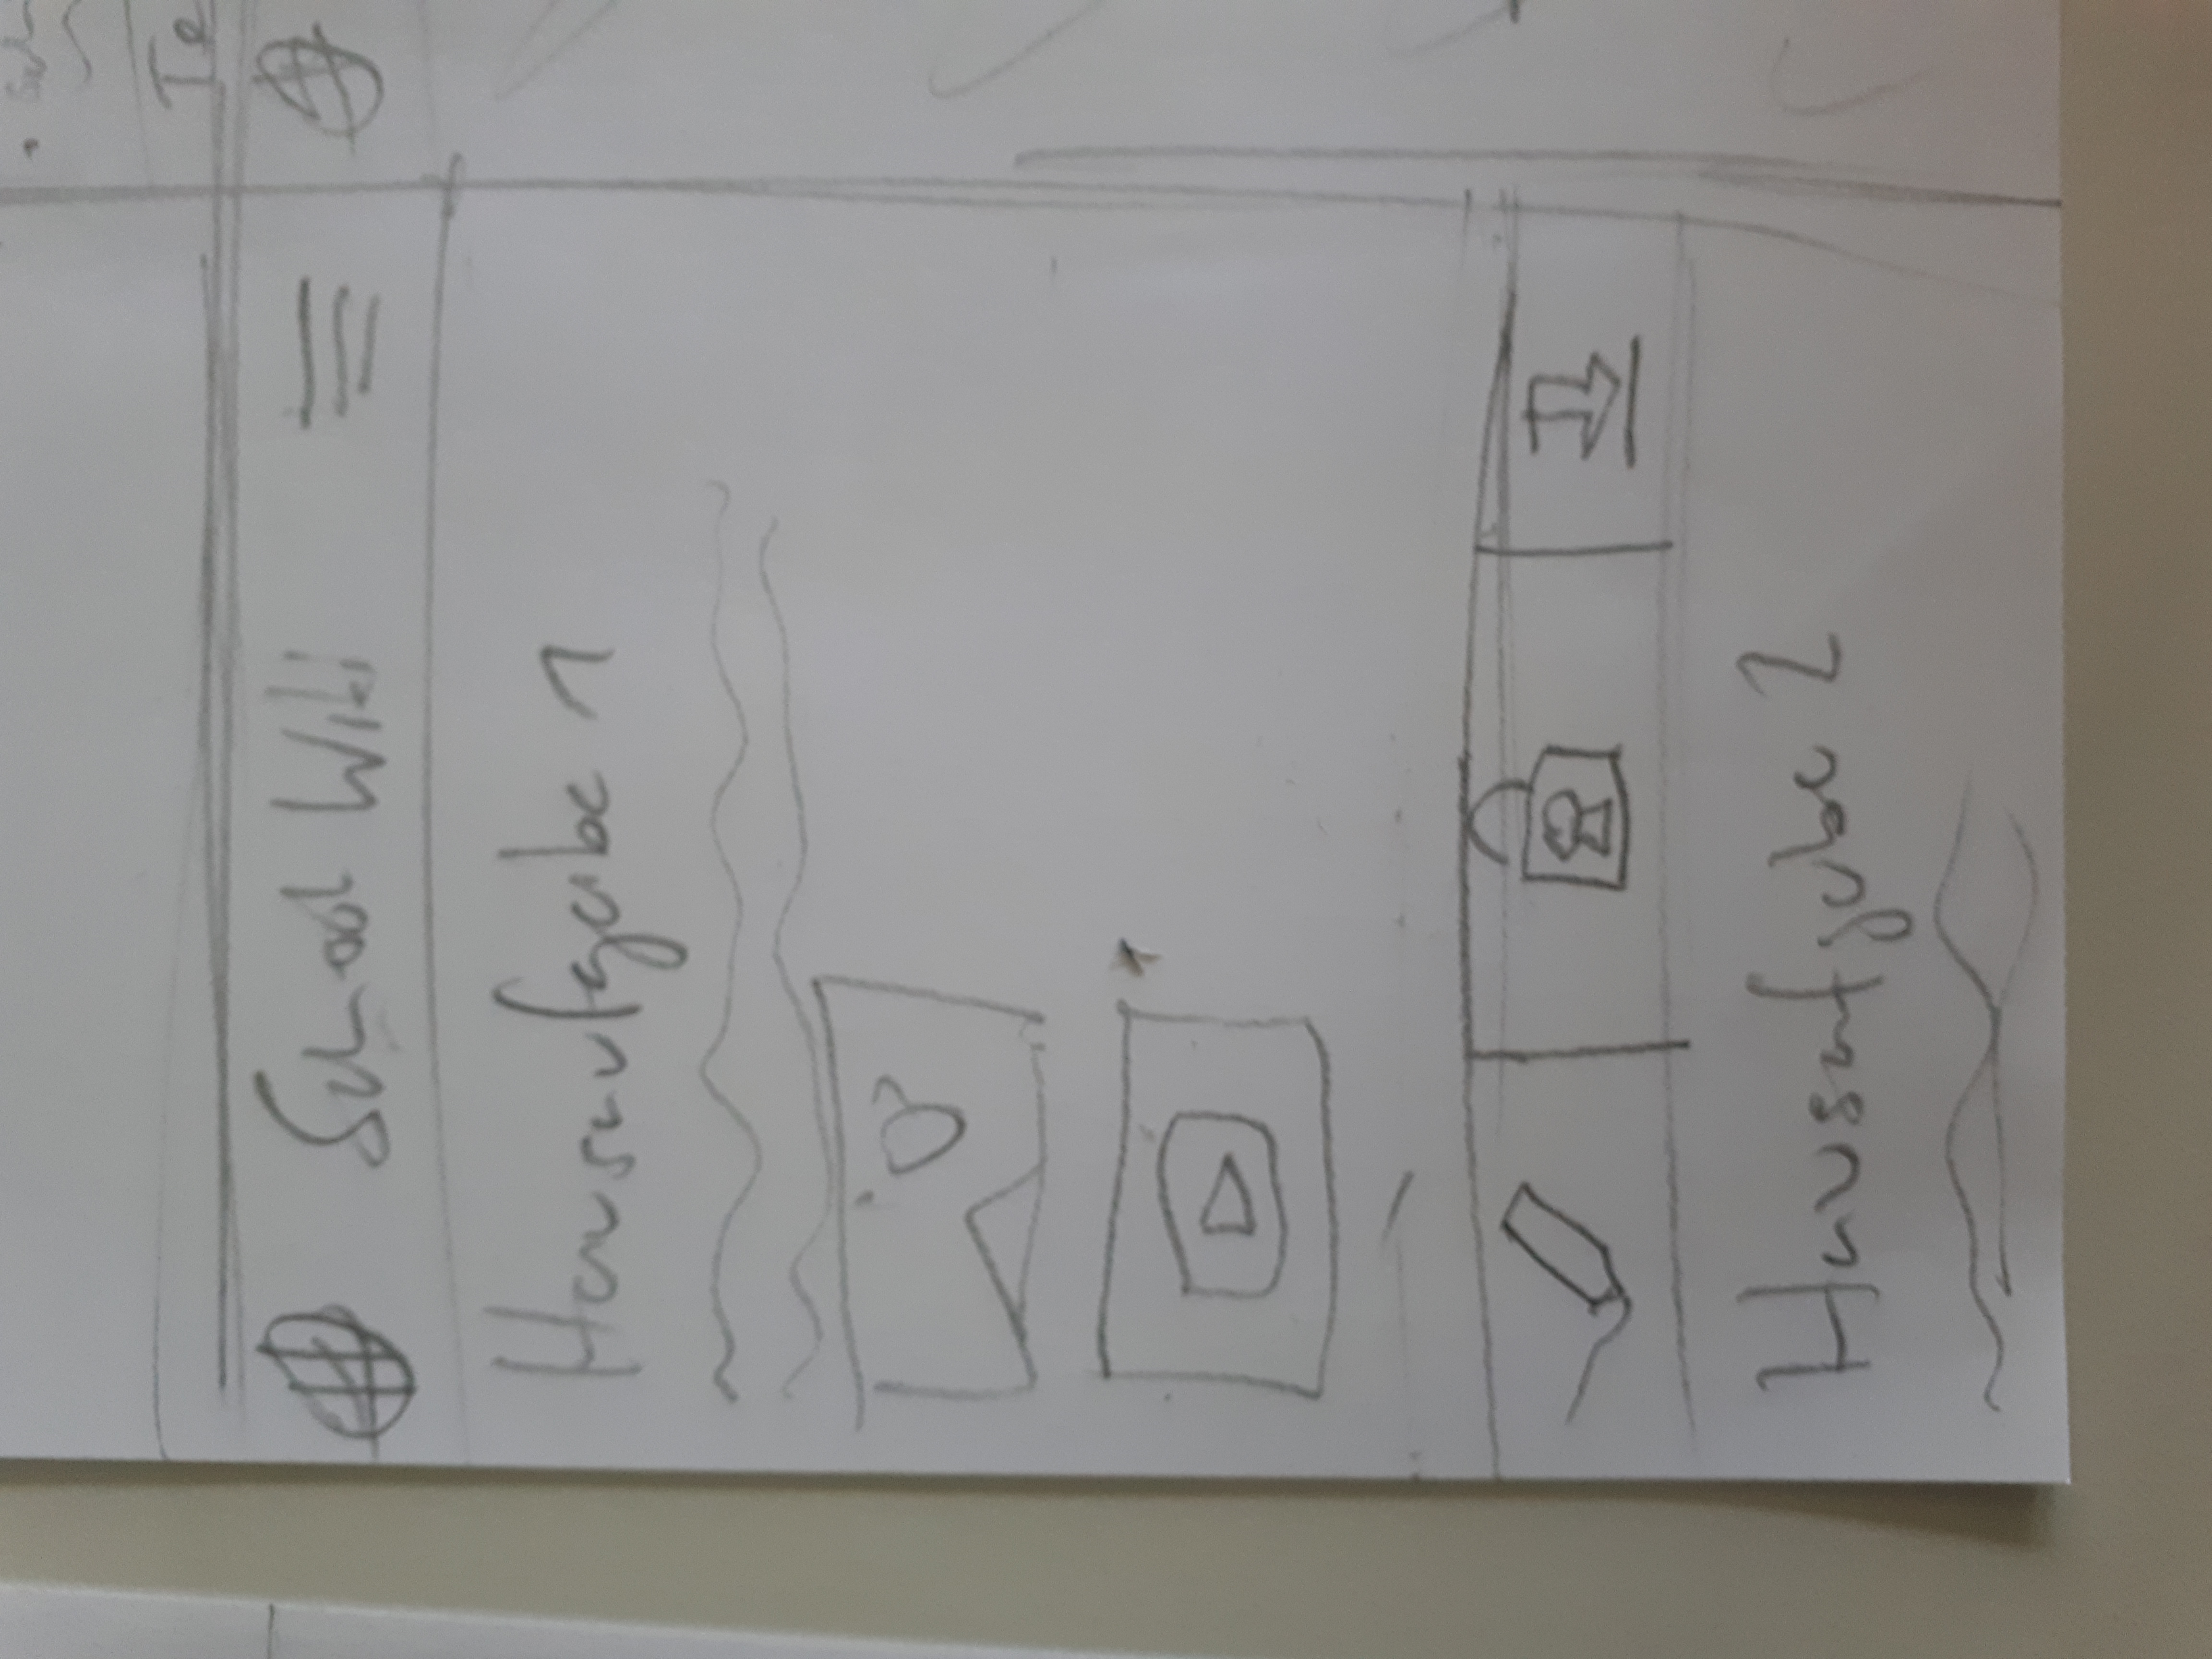 School Wiki
Hausaufgabe 1
Hausaufgabe 2
Te